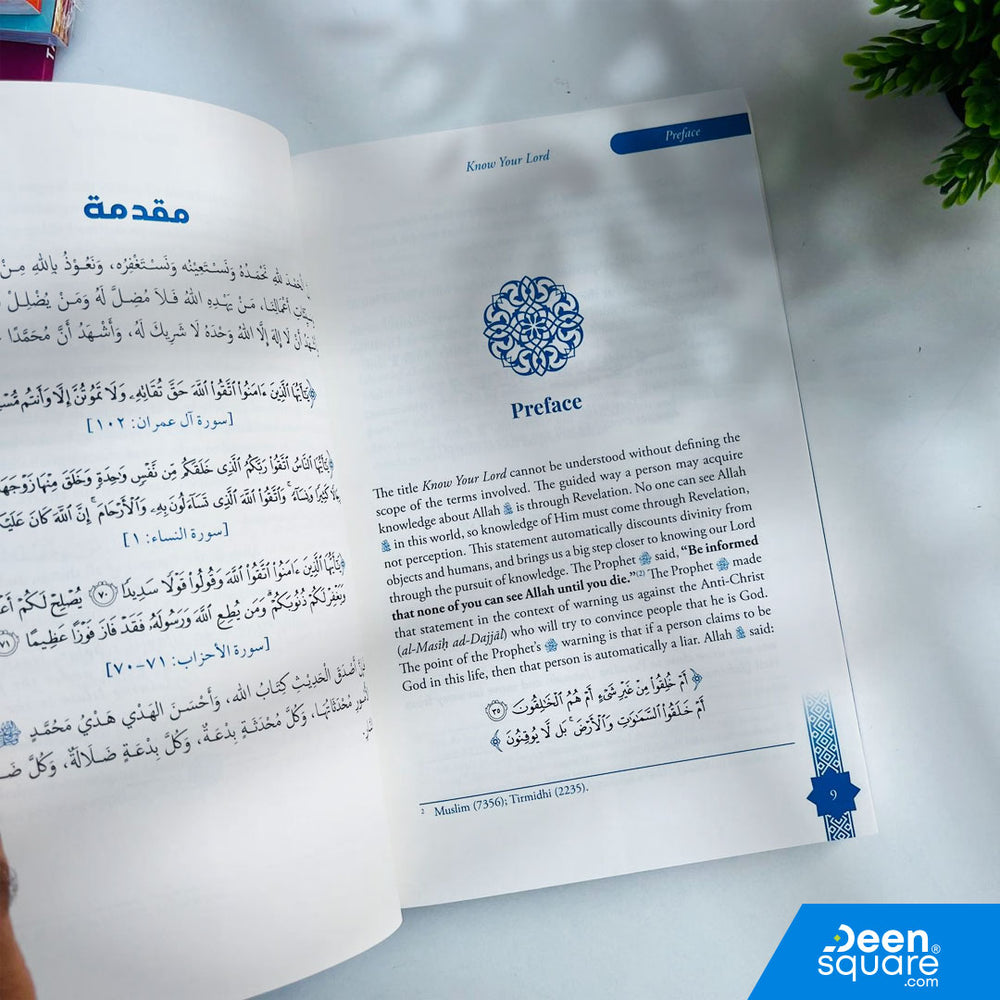 مقدمة
نَحْمَدُهُ وَنَسْتَعِيْنُه وَنَسْتَغْفِرُه، وَنَعُوْذُ بِاللهِ مِنْ
أَعْمَالِنَا، مَنْ يَهْدِهِ اللهُ فَلاَ مُضِلَّ لَهُ وَمَنْ يُضْلِلْ
أَنْ لَا إِلَهَ إِلَّا اللهُ وَحْدَهُ لَا شَرِيكَ لَهُ، وَأَشْهَدُ أَنَّ مُحَمَّدًا
﴿يَٰٓأَيُّهَا ٱلَّذِينَ ءَامَنُوا۟ ٱتَّقُوا۟ ٱللَّهَ حَقَّ تُقَاتِهِۦ وَلَا تَمُوتُنَّ إِلَّا وَأَنتُم
[سورة آل عمران: ١٠٢]
﴿يَٰٓأَيُّهَا ٱلنَّاسُ ٱتَّقُوا۟ رَبَّكُمُ ٱلَّذِى خَلَقَكُم مِّن نَّفْسٍ وَٰحِدَةٍ وَخَلَقَ مِنْهَا زَوْجَهَا
كَثِيرًا وَنِسَآءً ۚ وَٱتَّقُوا۟ ٱللَّهَ ٱلَّذِى تَسَآءَلُونَ بِهِۦ وَٱلْأَرْحَامَ ۚ إِنَّ ٱللَّهَ كَانَ
[سورة النساء: ١]
﴿يَٰٓأَيُّهَا ٱلَّذِينَ ءَامَنُوا۟ ٱتَّقُوا۟ ٱللَّهَ وَقُولُوا۟ قَوْلًا سَدِيدًا ٧٠ يُصْلِحْ لَكُمْ
وَيَغْفِرْ لَكُمْ ذُنُوبَكُمْ ۗ وَمَن يُطِعِ ٱللَّهَ وَرَسُولَهُۥ فَقَدْ فَازَ فَوْزًا عَظِيمًا ٧١
[سورة الأحزاب: ٧١-٧٠]
أَصْدَقَ الْحَدِيْثِ كِتَابُ الله، وَأَحْسَنَ الْهَدْيِ هَدْيُ مُحَمَّدٍ ﷺ
مُحْدَثَاتُهَا، وَكُلَّ مُحْدَثَةٍ بِدْعَةٌ، وَكُلَّ بِدْعَةٍ ضَلَالَةٌ، وَكُلَّ
Know Your Lord
Preface
Preface
The title Know Your Lord cannot be understood without defining the
scope of the terms involved. The guided way a person may acquire
knowledge about Allah ﷻ is through Revelation. No one can see Allah
ﷻ in this world, so knowledge of Him must come through Revelation,
not perception. This statement automatically discounts divinity from
objects and humans, and brings us a big step closer to knowing our Lord
through the pursuit of knowledge. The Prophet ﷺ said, “Be informed
that none of you can see Allah until you die.”(2) The Prophet ﷺ made
that statement in the context of warning us against the Anti-Christ
(al-Masiḥ ad-Dajjāl) who will try to convince people that he is God.
The point of the Prophet’s ﷺ warning is that if a person claims to be
God in this life, then that person is automatically a liar. Allah ﷻ said:
﴿أَمْ خُلِقُوا۟ مِنْ غَيْرِ شَىْءٍ أَمْ هُمُ ٱلْخَٰلِقُونَ ٣٥
أَمْ خَلَقُوا۟ ٱلسَّمَٰوَٰتِ وَٱلْأَرْضَ ۚ بَل لَّا يُوقِنُونَ﴾
2 Muslim (7356); Tirmidhi (2235).
9
Deen®
square
.com